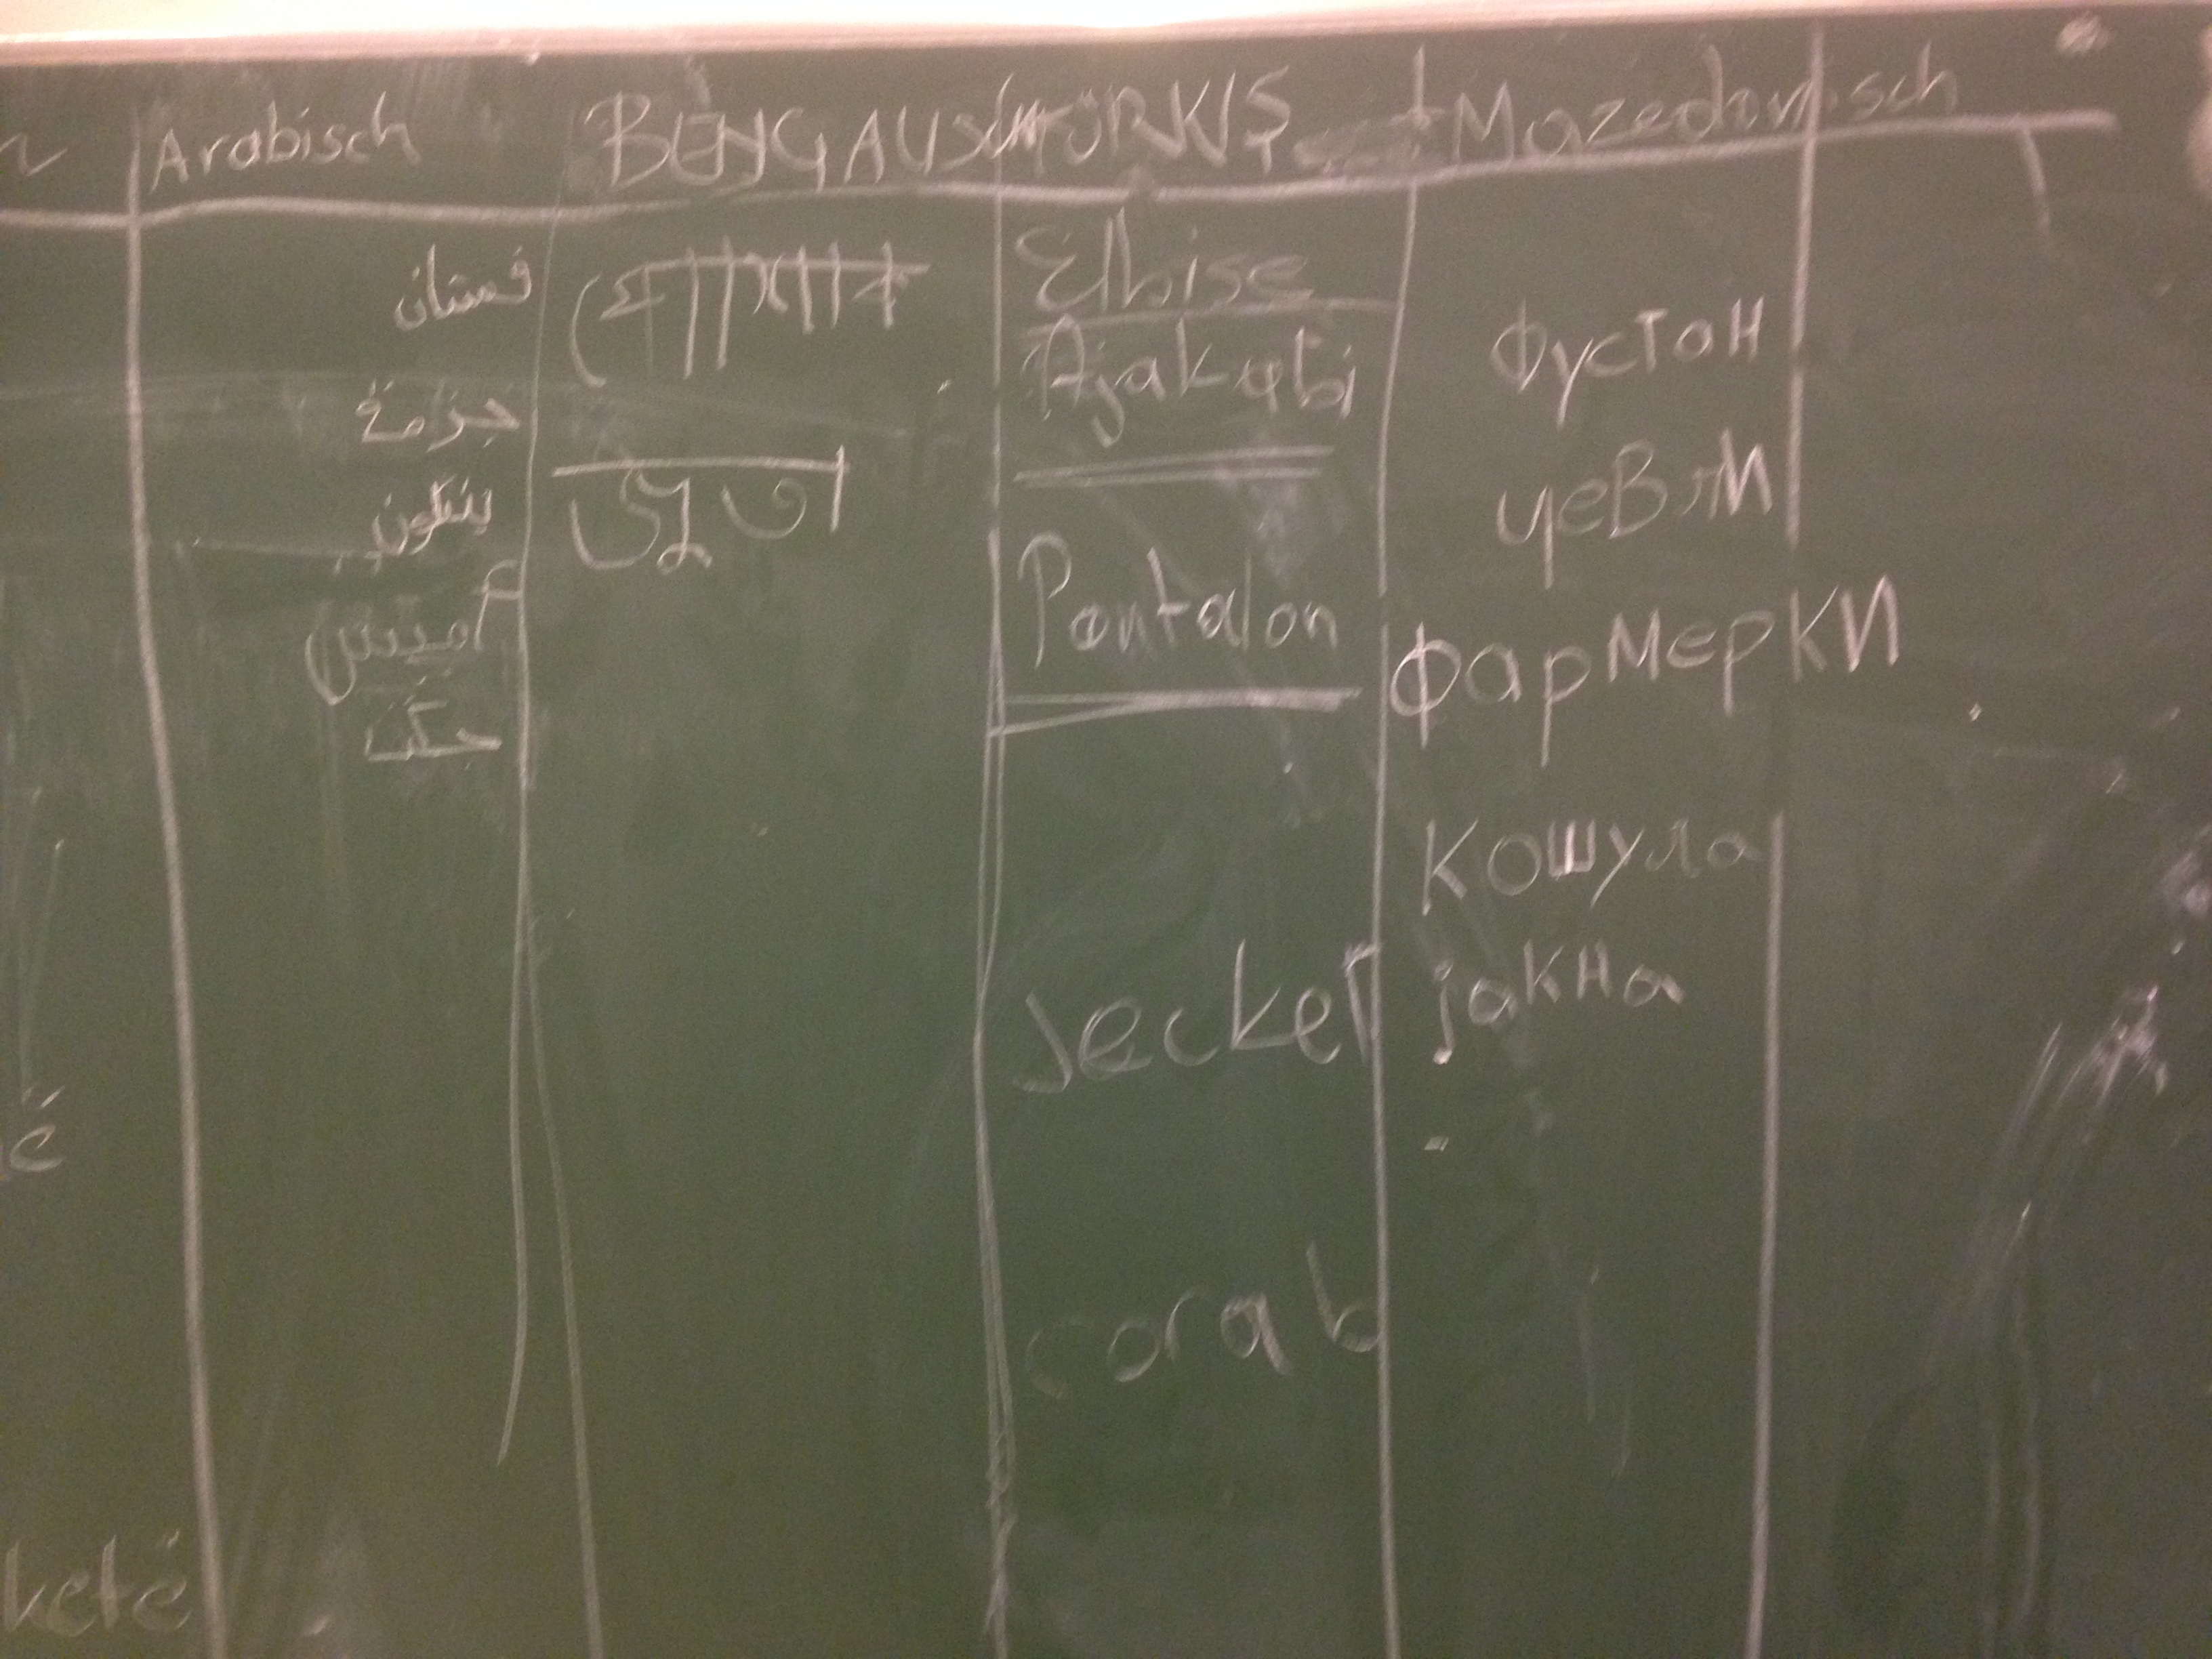 Arabisch
BENGALISCH
TÜRKIŞ
Mazedonisch
فستان
جزمة
بنطلون
حكت
পোষাক
জুতা
Elbise
Ajakabi
Pantalon
Jecket
corab
Фустан
чевли
фармерки
кошула
јакна
ketë